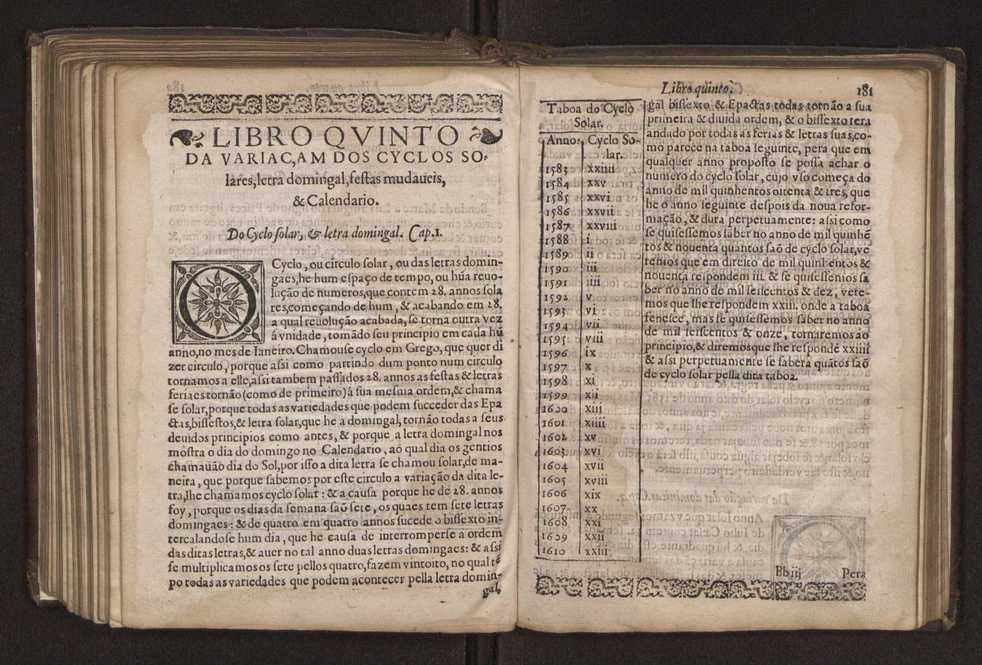 LIBRO QVINTO
DA VARIAC,AM DOS CYCLOS SO-
lares,letra domingal,festas mudaueis,
& Calendario.
Do Cyclo solar, & letra domingal. Cap.1.
O Cyclo, ou circulo solar, ou das letras domin-
gaes,he hum espaço de tempo, ou hũa reuo-
lução de numeros,que contem 28. annos sola
res,começando de hum, & acabando em 28.
a qual reuolução acabada,se torna outra vez
á vnidade, tornãdo seu principio em cada hũ
anno,no mes de Ianeiro.Chamouse cyclo em Grego,que quer di
zer circulo,porque assi como partindo dum ponto num circulo
tornamos a elle,assi tambem passados 28. annos as festas & letras
feriaes tornão(como de primeiro)á sua mesma ordem,& chama
se solar,porque todas as variedades que podem succeder das Epa
ctas,bissestos,& letra solar,que he a domingal,tornão todas a seus
deuidos principios como antes, & porque a letra domingal nos
móstra o dia do domingo no Calendario, aó qual dia os gentios
chamauão dia do Sol,por isso a dita letra se chamou solar,de ma-
neira, que porque sabemos por este circulo a variação da dita le-
tra,lhe chamamos cyclo solar : & a causa porque he de 28. annos
foy, porque os dias da semana saõ sete, os quaes tem sete letras
domingaes: & de quatro em quatro annos sucede o bissexto in-
tercalandose hum dia, que he causa de interromperse a ordem
das ditas letras,& auer no tal anno duas letras domingaes: & assi
se multiplicamos os sete pellos quatro,fazem vintoito, no qual tẽ
po todas as variedades que podem acontecer pella letra domin-
gal,
Libro quinto.
181
Taboa do Cyclo
Solar.
Anno. Cyclo So-
lar.
1583 xxiiii
1584 xxv
1585 xxvi
1586 xxvii
1587 xxviii
1588 i
1589 ii
1590 iii
1591 iiii
1592 v
1593 vi
1594 vii
1595 viii
1596 ix
1597 x
1598 xi
1599 xii
1600 xiii
1601 xiiii
1602 xv
1603 xvi
1604 xvii
1605 xviii
1606 xix
1607 xx
1608 xxi
1609 xxii
1610 xxiii
gal bissexto & Epactas todas tornão a sua
primeira & diuida ordem, & o bissexto tera
andado por todas as ferias & letras suas,co-
mo parece na taboa seguinte, pera que em
qualquer anno proposto se possa achar o
numero do cyclo solar, cujo vso começa do
anno de mil quinhentos oitenta & tres, que
he o anno seguinte despois da noua refor-
mação, & dura perpetuamente: assi como
se quisessemos saber no anno de mil quinhẽ
tos & nouenta quantos saõ de cyclo solar,ve
remos que em direito de mil quinhentos &
nouenta respondem iii. & se quisessemos sa
ber no anno de mil seiscentos & dez, vere-
mos que lhe respondem xxiii. onde a taboa
fenesce, mas se quisessemos saber no anno
de mil seiscentos & onze, tornaremos ao
principio,& diremos que lhe responde xxiiii
& assi perpetuamente se sabera quãtos saõ
de cyclo solar pella dita taboa.
Bbiij Pera